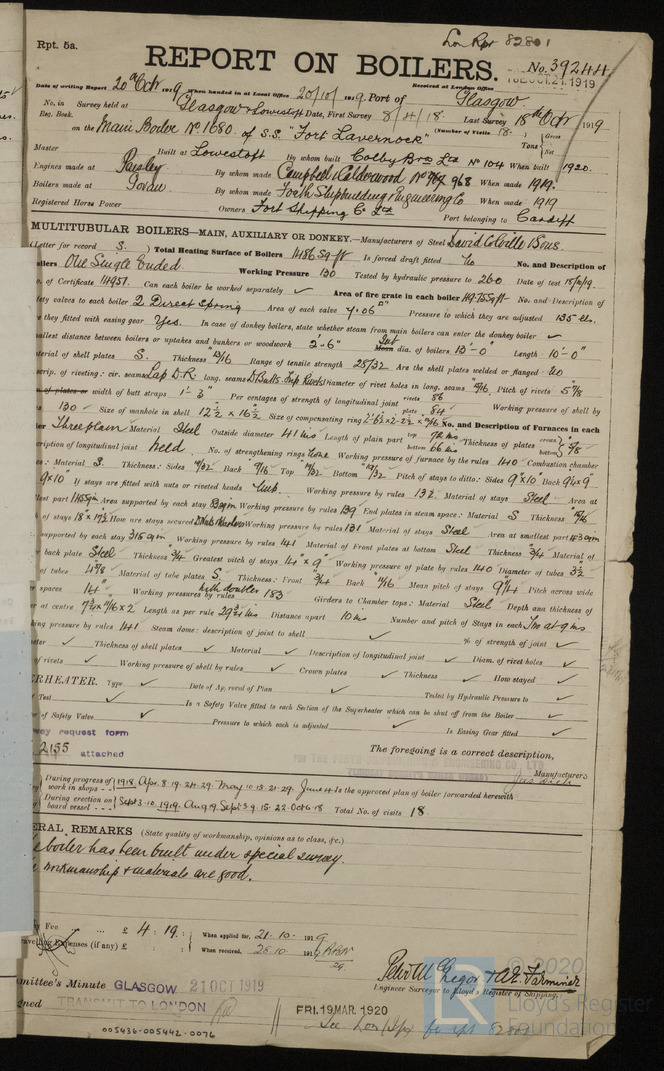 Rpt. 5a.
Lon Rpt 82801
REPORT ON BOILERS.
No. 39244
OCT 21 1919
Date of writing Report 20th Octr 1919 When handed in at Local Office 20/10/1919 Port of Glasgow
Received at London Office
No. in Survey held at Glasgow & Lowestoft Date, First Survey 8/4/18 Last Survey 18th Octr 1919
Reg. Book.
on the Main Boiler No 1680 of S.S. "Fort Lavernock" (Number of Visits 18 Gross Tons Net
Master Built at Lowestoft By whom built Colby Bros Ltd No 104 When built 1920.
Engines made at Paisley By whom made Campbell & Calderwood No 968 When made 1919.
Boilers made at Govan By whom made Forth Shipbuilding & Engineering Co When made 1919
Registered Horse Power Owners Fort Shipping Co Ltd Port belonging to Cardiff
MULTITUBULAR BOILERS—MAIN, AUXILIARY OR DONKEY.—Manufacturers of Steel David Colville & Sons.
(Letter for record S.) Total Heating Surface of Boilers 1486 Sq ft Is forced draft fitted No No. and Description of
Boilers One Single Ended. Working Pressure 130 Tested by hydraulic pressure to 260 Date of test
No. of Certificate 14957. Can each boiler be worked separately ✓ Area of fire grate in each boiler 49.75 Sq ft No. and Description of
safety valves to each boiler 2 Direct Spring Area of each valve 7.06" Pressure to which they are adjusted 135 lbs.
Are they fitted with easing gear Yes. In case of donkey boilers, state whether steam from main boilers can enter the donkey boiler ✓
Smallest distance between boilers or uptakes and bunkers or woodwork 2'-6" Int dia. of boilers 13'-0" Length 10'-0"
Material of shell plates S. Thickness 13/16 Range of tensile strength 28/32 Are the shell plates welded or flanged No
Descrip. of riveting: cir. seams Lap D.R. long. seams D Butts. Trip Rivets Diameter of rivet holes in long. seams Pitch of rivets 5 7/8
width of butt straps 1'-3" Per centages of strength of longitudinal joint rivets 86 plate 84 Working pressure of shell by
rules 130 Size of manhole in shell 12 1/2 x 16 1/2 Size of compensating ring No. and Description of Furnaces in each
boiler Three plain Material Steel Outside diameter 41 ins Length of plain part top bottom Thickness of plates crown bottom 5/8
Description of longitudinal joint Weld No. of strengthening rings None Working pressure of furnace by the rules 140 Combustion chamber
plates: Material S. Thickness: Sides Back Top Bottom Pitch of stays to ditto: Sides 9"x10" Back 9 1/4 x 9
Top 9x10 If stays are fitted with nuts or riveted heads Nuts. Working pressure by rules 132 Material of stays Steel Area at
smallest part Area supported by each stay Working pressure by rules 139 End plates in steam space: Material S Thickness
Pitch of stays 18"x17 1/2 How are stays secured D Nuts Washers Working pressure by rules 131 Material of stays Steel Area at smallest part
Area supported by each stay 315 qm Working pressure by rules 141 Material of Front plates at bottom Steel Thickness 3/4 Material of
Lower back plate Steel Thickness 3/4 Greatest pitch of stays 14" x 9" Working pressure of plate by rules 140 Diameter of tubes 3 1/2
Pitch of tubes 4 7/8 Material of tube plates S. Thickness: Front 3/4 Back Mean pitch of stays 9 1/4 Pitch across wide
water spaces 14" Working pressures by rules with doubler 183 Girders to Chamber tops: Material Steel Depth and thickness of
girder at centre Length as per rule Distance apart 10 ins Number and pitch of Stays in each Two at 9 ins
Working pressure by rules 141 Steam dome: description of joint to shell ✓ % of strength of joint ✓
Diameter ✓ Thickness of shell plates ✓ Material ✓ Description of longitudinal joint ✓ Diam. of rivet holes ✓
Pitch of rivets ✓ Working pressure of shell by rules ✓ Crown plates ✓ Thickness ✓ How stayed ✓
SUPERHEATER. Type ✓ Date of Approval of Plan ✓ Tested by Hydraulic Pressure to ✓
Date of Test ✓ Is a Safety Valve fitted to each Section of the Superheater which can be shut off from the Boiler ✓
Diameter of Safety Valve ✓ Pressure to which each is adjusted ✓ Is Easing Gear fitted ✓
Survey request form
2155 attached
The foregoing is a correct description,
Manufacturer.
During progress of work in shops 1918. Apr. 8.19.24.29. May 10.13.21.29. June 4 Is the approved plan of boiler forwarded herewith
During erection on board vessel Sept. 3.10. 1919. Aug 19. Sept 3.9.15.22. Oct 6.18 Total No. of visits 18.
GENERAL REMARKS (State quality of workmanship, opinions as to class, &c.)
The boiler has been built under special survey.
The workmanship & materials are good.
Survey Fee £ 4 : 19 : When applied for, 21.10.1919
Travelling Expenses (if any) £ When received, 28.10.1919
Peter McGregor & A.E. Farminer
Engineer Surveyor to Lloyd's Register of Shipping.
Committee's Minute GLASGOW 21 OCT 1919
Assigned TRANSMIT TO LONDON
FRI. 19 MAR. 1920
© 2020
Lloyd's Register
Foundation
005436-005442-0076